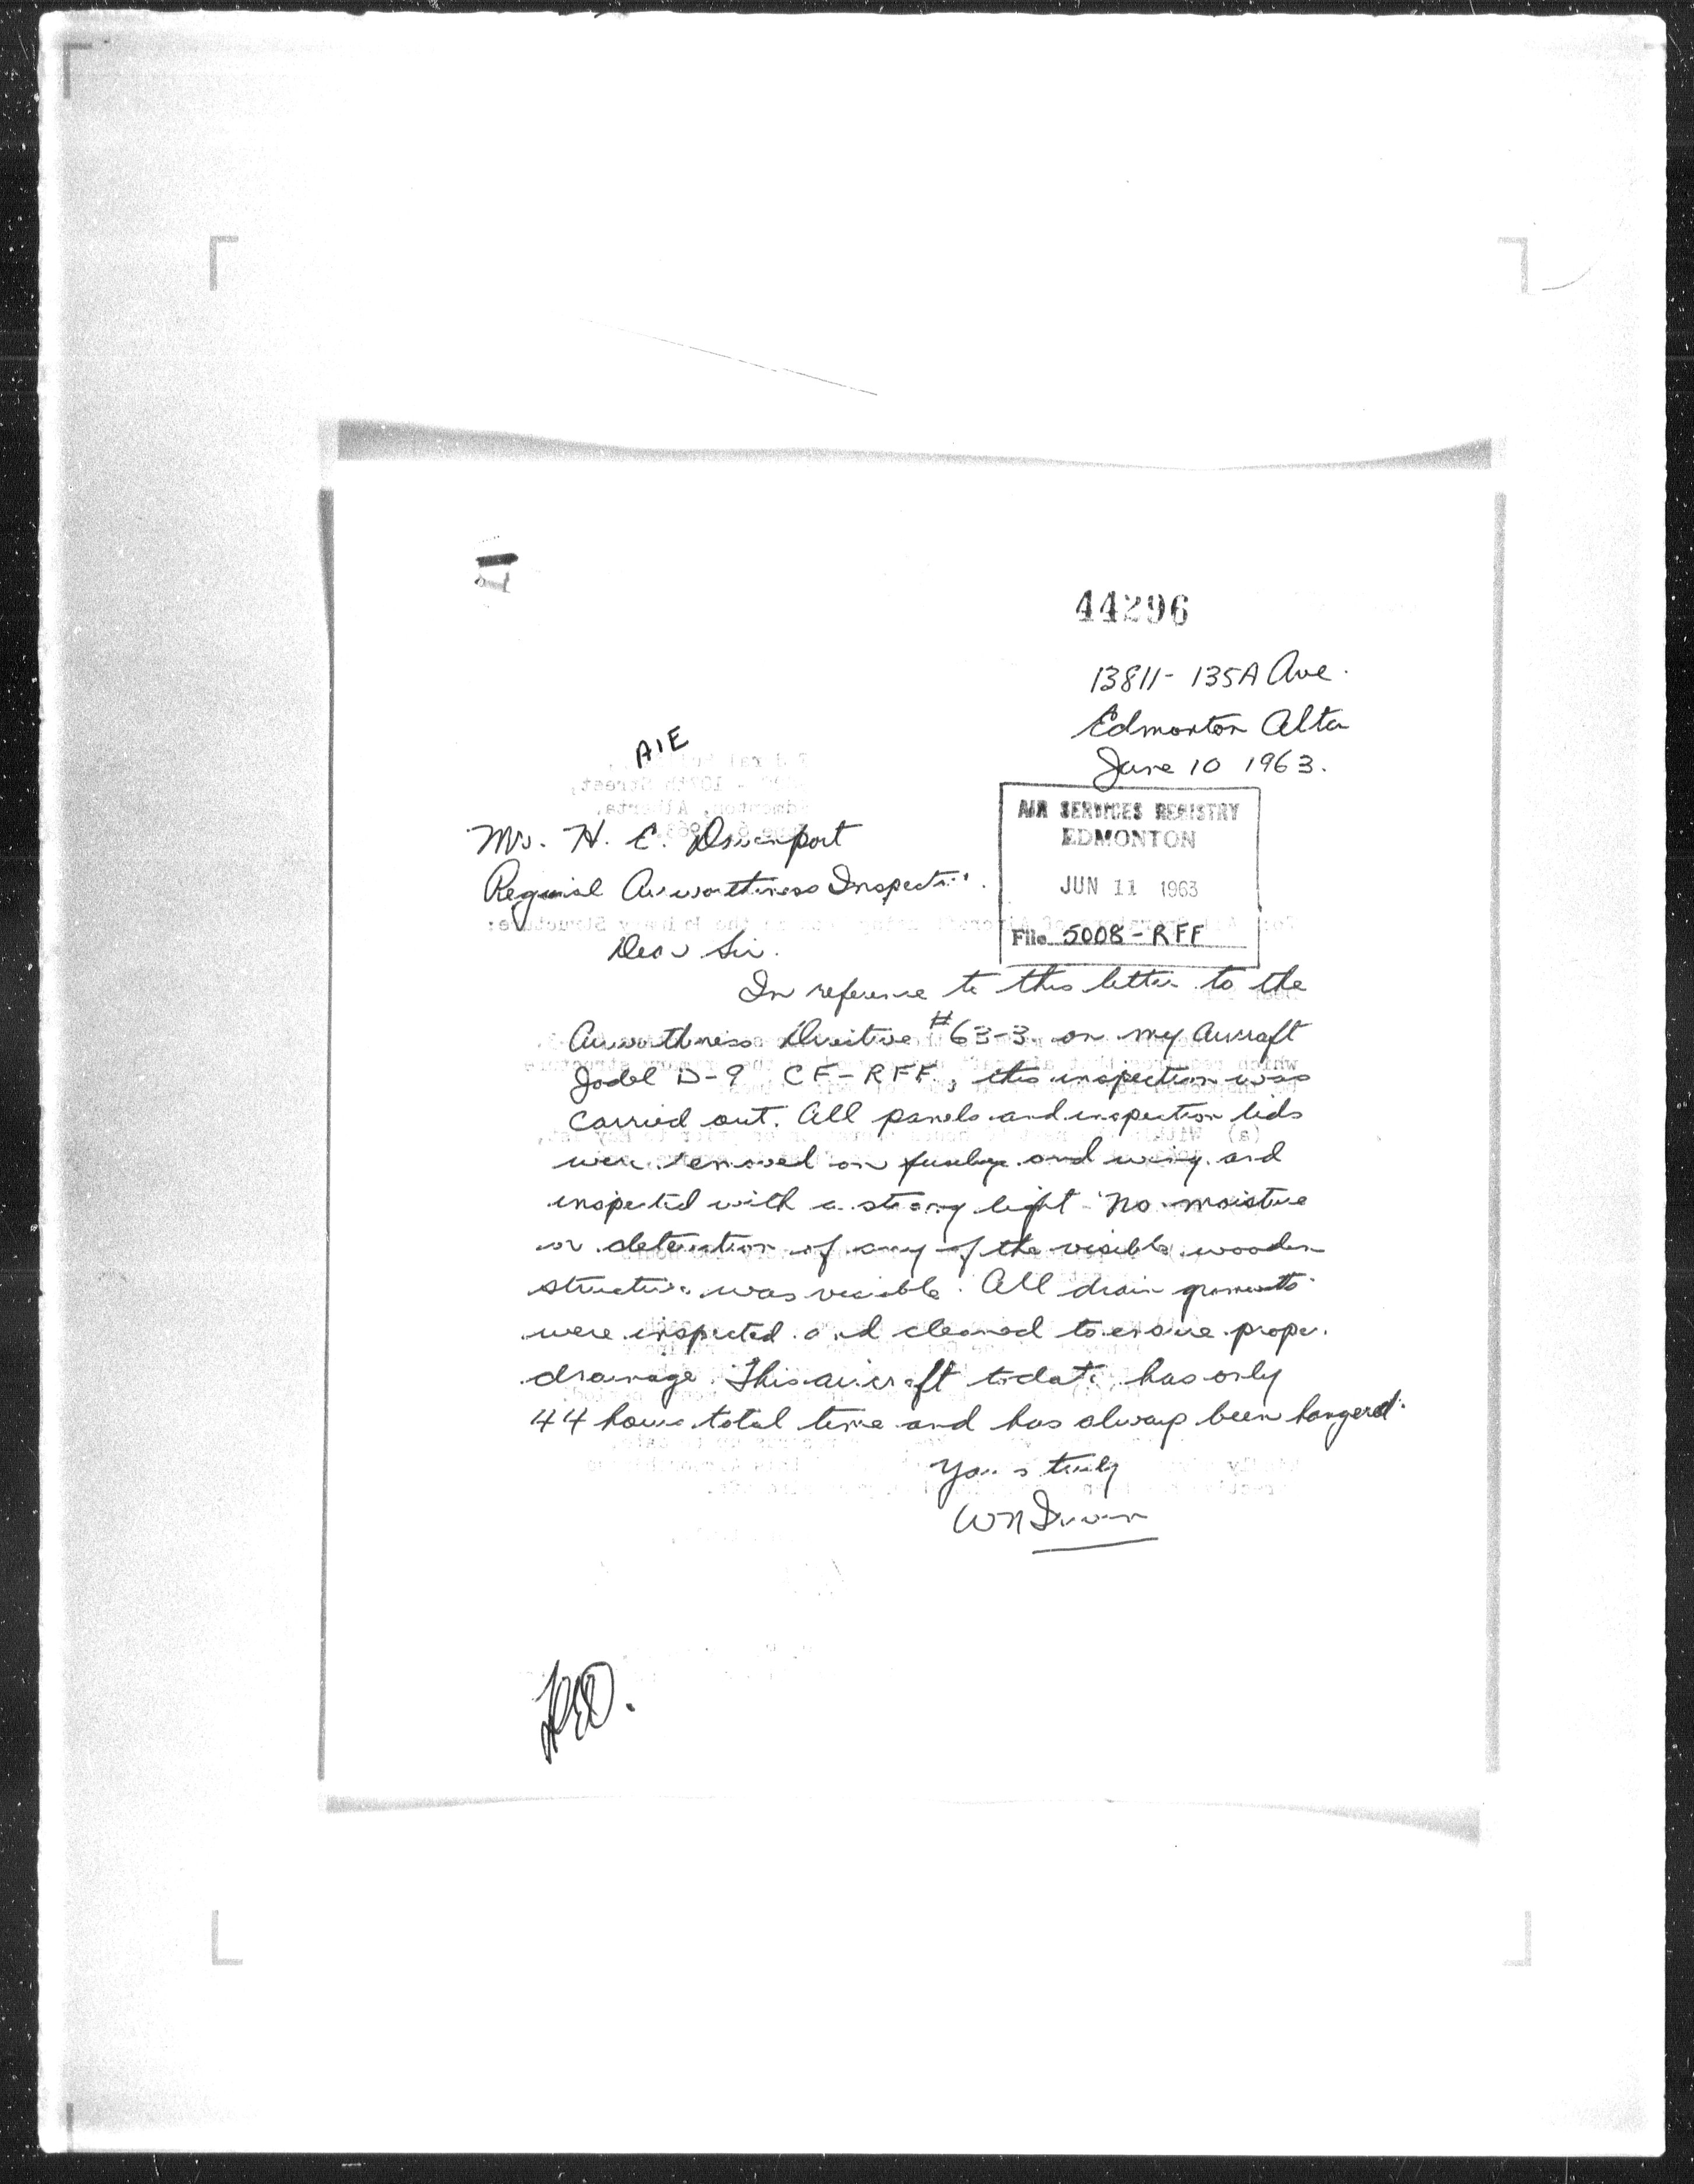 44296
13811 - 135A Ave.
Edmonton Alta
June 10 1963.
AIE
AIR SERVICES REGISTRY
EDMONTON
JUN 11 1963
File 5008 - RFF
Mr. H. E. Davenport
Regional Airworthiness Inspector.
Dear Sir.
In reference to this letter to the
Airworthiness Directive #63-3 on my Aircraft
Jodel D-9 CF-RFF, this inspection was
carried out. All panels and inspection lids
were removed on fuselage and wing and
inspected with a strong light. No moisture
or of any of the visible wooden
structure was visible. All drain grommets
were inspected and cleaned to ensure proper
drainage. This aircraft to date, has only
44 hours total time and has always been hangered.
Yours truly